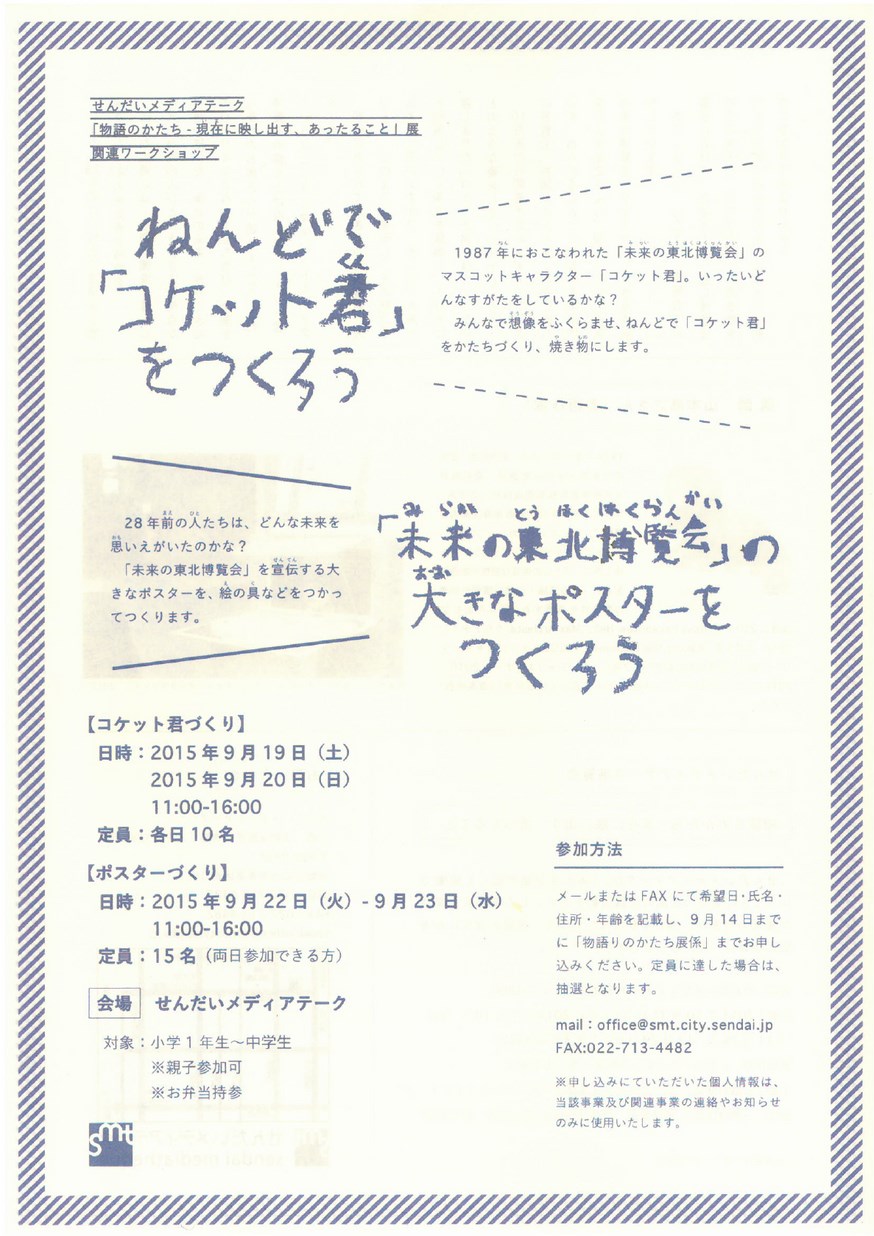 せんだいメディアテーク
「物語のかたち - 現在に映し出す、あったること」展
関連ワークショップ
ねんどで
「コケット君」
をつくろう
1987年におこなわれた「未来の東北博覧会」の
マスコットキャラクター「コケット君」。いったいど
んなすがたをしているかな？
みんなで想像をふくらませ、ねんどで「コケット君」
をかたちづくり、焼き物にします。
28年前の人たちは、どんな未来を
思いえがいたのかな？
「未来の東北博覧会」を宣伝する大
きなポスターを、絵の具などをつかっ
てつくります。
「未来の東北博覧会」の
大きなポスターを
つくろう
【コケット君づくり】
日時：2015年9月19日（土）
2015年9月20日（日）
11:00-16:00
定員：各日10名
【ポスターづくり】
日時：2015年9月22日（火）- 9月23日（水）
11:00-16:00
定員：15名（両日参加できる方）
会場 せんだいメディアテーク
対象：小学1年生〜中学生
※親子参加可
※お弁当持参
smt
参加方法
メールまたはFAXにて希望日・氏名・
住所・年齢を記載し、9月14日まで
に「物語りのかたち展係」までお申し
込みください。定員に達した場合は、
抽選となります。
mail：office@smt.city.sendai.jp
FAX:022-713-4482
※申し込みにていただいた個人情報は、
当該事業及び関連事業の連絡やお知らせ
のみに使用いたします。